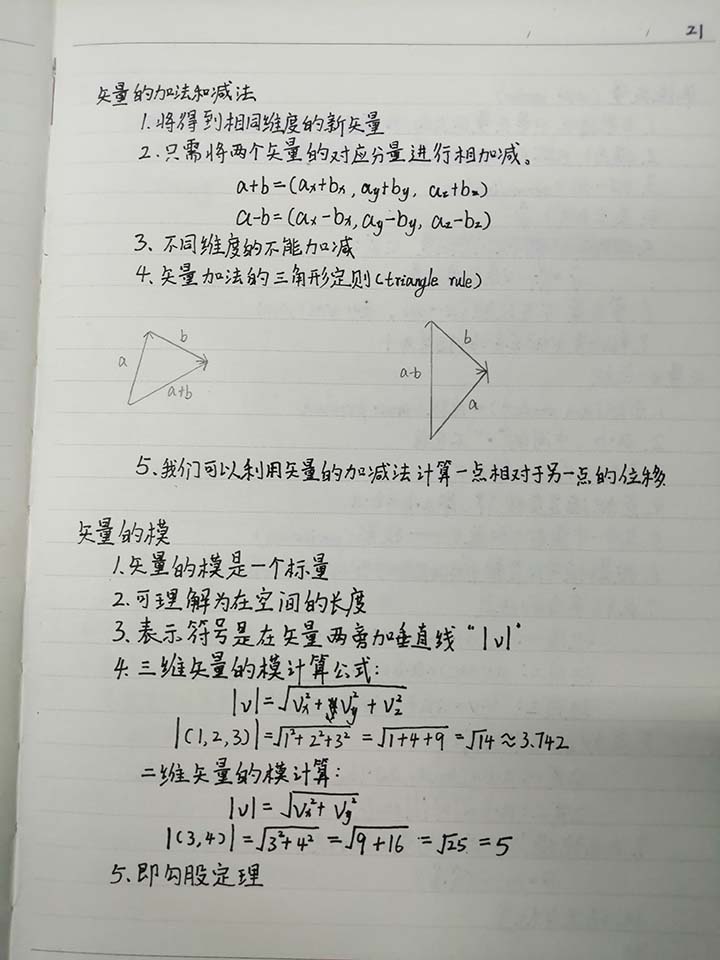 21
矢量的加法和减法
1.将得到相同维度的新矢量
2.只需将两个矢量的对应分量进行相加减。
a+b=(ax+bx, ay+by, az+bz)
a-b=(ax-bx, ay-by, az-bz)
3、不同维度的不能加减
4、矢量加法的三角形定则(triangle rule)
a b a+b
a-b b a
5、我们可以利用矢量的加减法计算一点相对于另一点的位移
矢量的模
1.矢量的模是一个标量
2.可理解为在空间的长度
3、表示符号是在矢量两旁加垂直线"|v|"
4.三维矢量的模计算公式:
|v|=√(Vx²+Vy²+Vz²)
|(1,2,3)|=√(1²+2²+3²)=√(1+4+9)=√14≈3.742
二维矢量的模计算:
|v|=√(Vx²+Vy²)
|(3,4)|=√(3²+4²)=√(9+16)=√25=5
5、即勾股定理